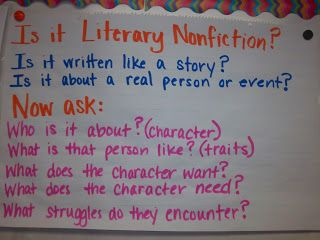 Is it Literary Nonfiction?
Is it written like a story?
Is it about a real person or event?
Now ask:
Who is it about? (character)
What is that person like? (traits)
What does the character want?
What does the character need?
What struggles do they encounter?